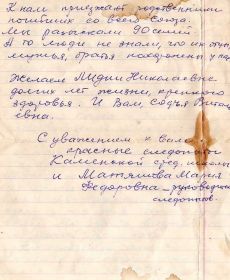 К нам приезжают родственники
погибших со всего Союза.
Мы разыскали 90 семей
А то люди не знали, что их отцы,
мужья, братья похоронены у
Желаем Лидии Николаевне
долгих лет жизни, крепкого
здоровья. И Вам,
евна.
С уважением к вам
красные следопыты
Каменской сред. школы
и Матяшова Мария
Федоровна – руководит
следопытов.